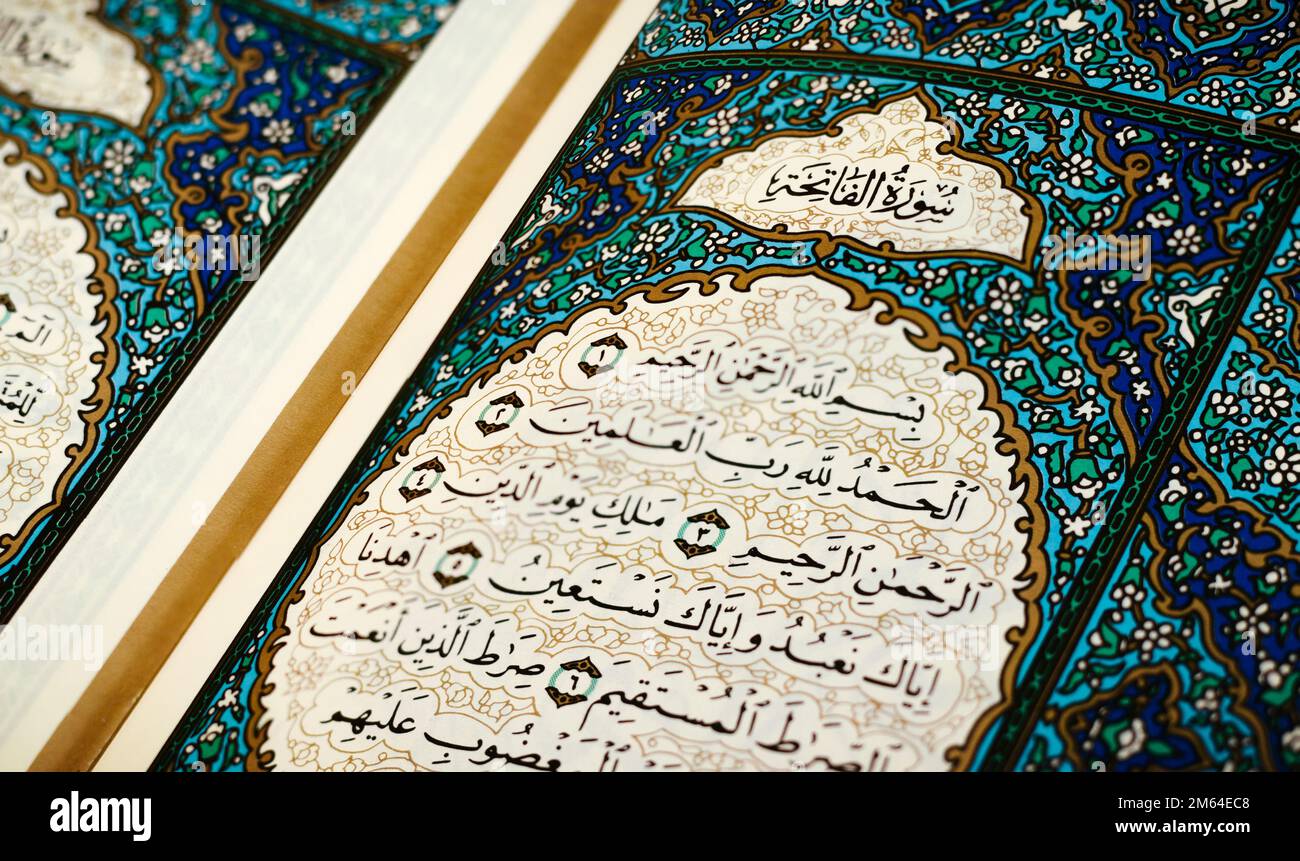 سُورَةُ الفَاتِحَةِ
بِسْمِ ٱللَّهِ ٱلرَّحْمَٰنِ ٱلرَّحِيمِ ١
ٱلْحَمْدُ لِلَّهِ رَبِّ ٱلْعَٰلَمِينَ ٢
ٱلرَّحْمَٰنِ ٱلرَّحِيمِ ٣ مَٰلِكِ يَوْمِ ٱلدِّينِ ٤
إِيَّاكَ نَعْبُدُ وَإِيَّاكَ نَسْتَعِينُ ٥ ٱهْدِنَا
ٱلصِّرَٰطَ ٱلْمُسْتَقِيمَ ٦ صِرَٰطَ ٱلَّذِينَ أَنْعَمْتَ
عَلَيْهِمْ ٱلْمَغْضُوبِ
سُورَةُ
الٓمٓ
alamy
Image ID: 2M64EC8
www.alamy.com